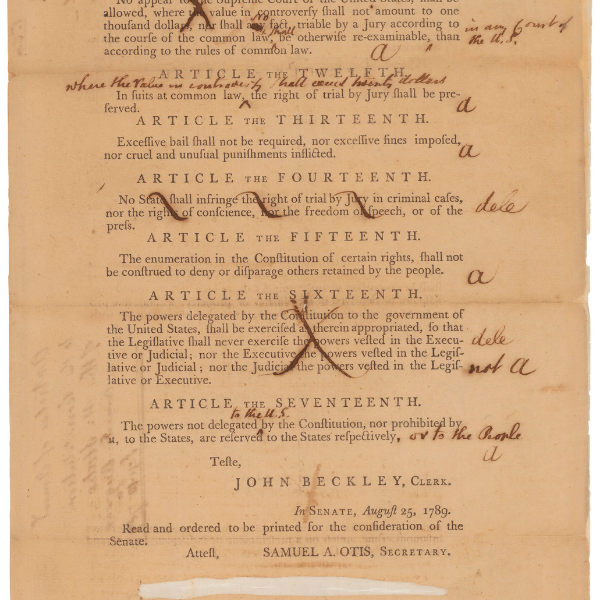 No appeal to the Supreme Court of the United States, ſhall be
allowed, where the value in controverſy ſhall not amount to one
thouſand dollars, nor ſhall any fact, triable by a Jury according to
no
shall
in any Court of
the U.S.
the courſe of the common law, be otherwiſe re-examinable, than
according to the rules of common law.
a
ARTICLE THE TWELFTH.
where the value in controversy shall exceed twenty dollars
In ſuits at common law, the right of trial by Jury ſhall be pre-
ſerved.
a
ARTICLE THE THIRTEENTH.
Exceſſive bail ſhall not be required, nor exceſſive fines impoſed,
nor cruel and unuſual puniſhments inflicted.
a
ARTICLE THE FOURTEENTH.
No State ſhall infringe the right of trial by Jury in criminal caſes,
nor the right of conſcience, nor the freedom of ſpeech, or of the
preſs.
dele
ARTICLE THE FIFTEENTH.
The enumeration in the Conſtitution of certain rights, ſhall not
be conſtrued to deny or diſparage others retained by the people.
a
ARTICLE THE SIXTEENTH.
The powers delegated by the Conſtitution to the government of
the United States, ſhall be exerciſed as therein appropriated, ſo that
the Legiſlative ſhall never exerciſe the powers veſted in the Execu-
dele
tive or Judicial; nor the Executive the powers veſted in the Legiſ-
lative or Judicial; nor the Judicial the powers veſted in the Legiſ-
not a
lative or Executive.
ARTICLE THE SEVENTEENTH.
to the U.S.
The powers not delegated by the Conſtitution, nor prohibited by
it, to the States, are reſerved to the States reſpectively, or to the People
a
Teſte,
JOHN BECKLEY, CLERK.
In SENATE, Auguſt 25, 1789.
Read and ordered to be printed for the conſideration of the
Senate.
Atteſt, SAMUEL A. OTIS, SECRETARY.